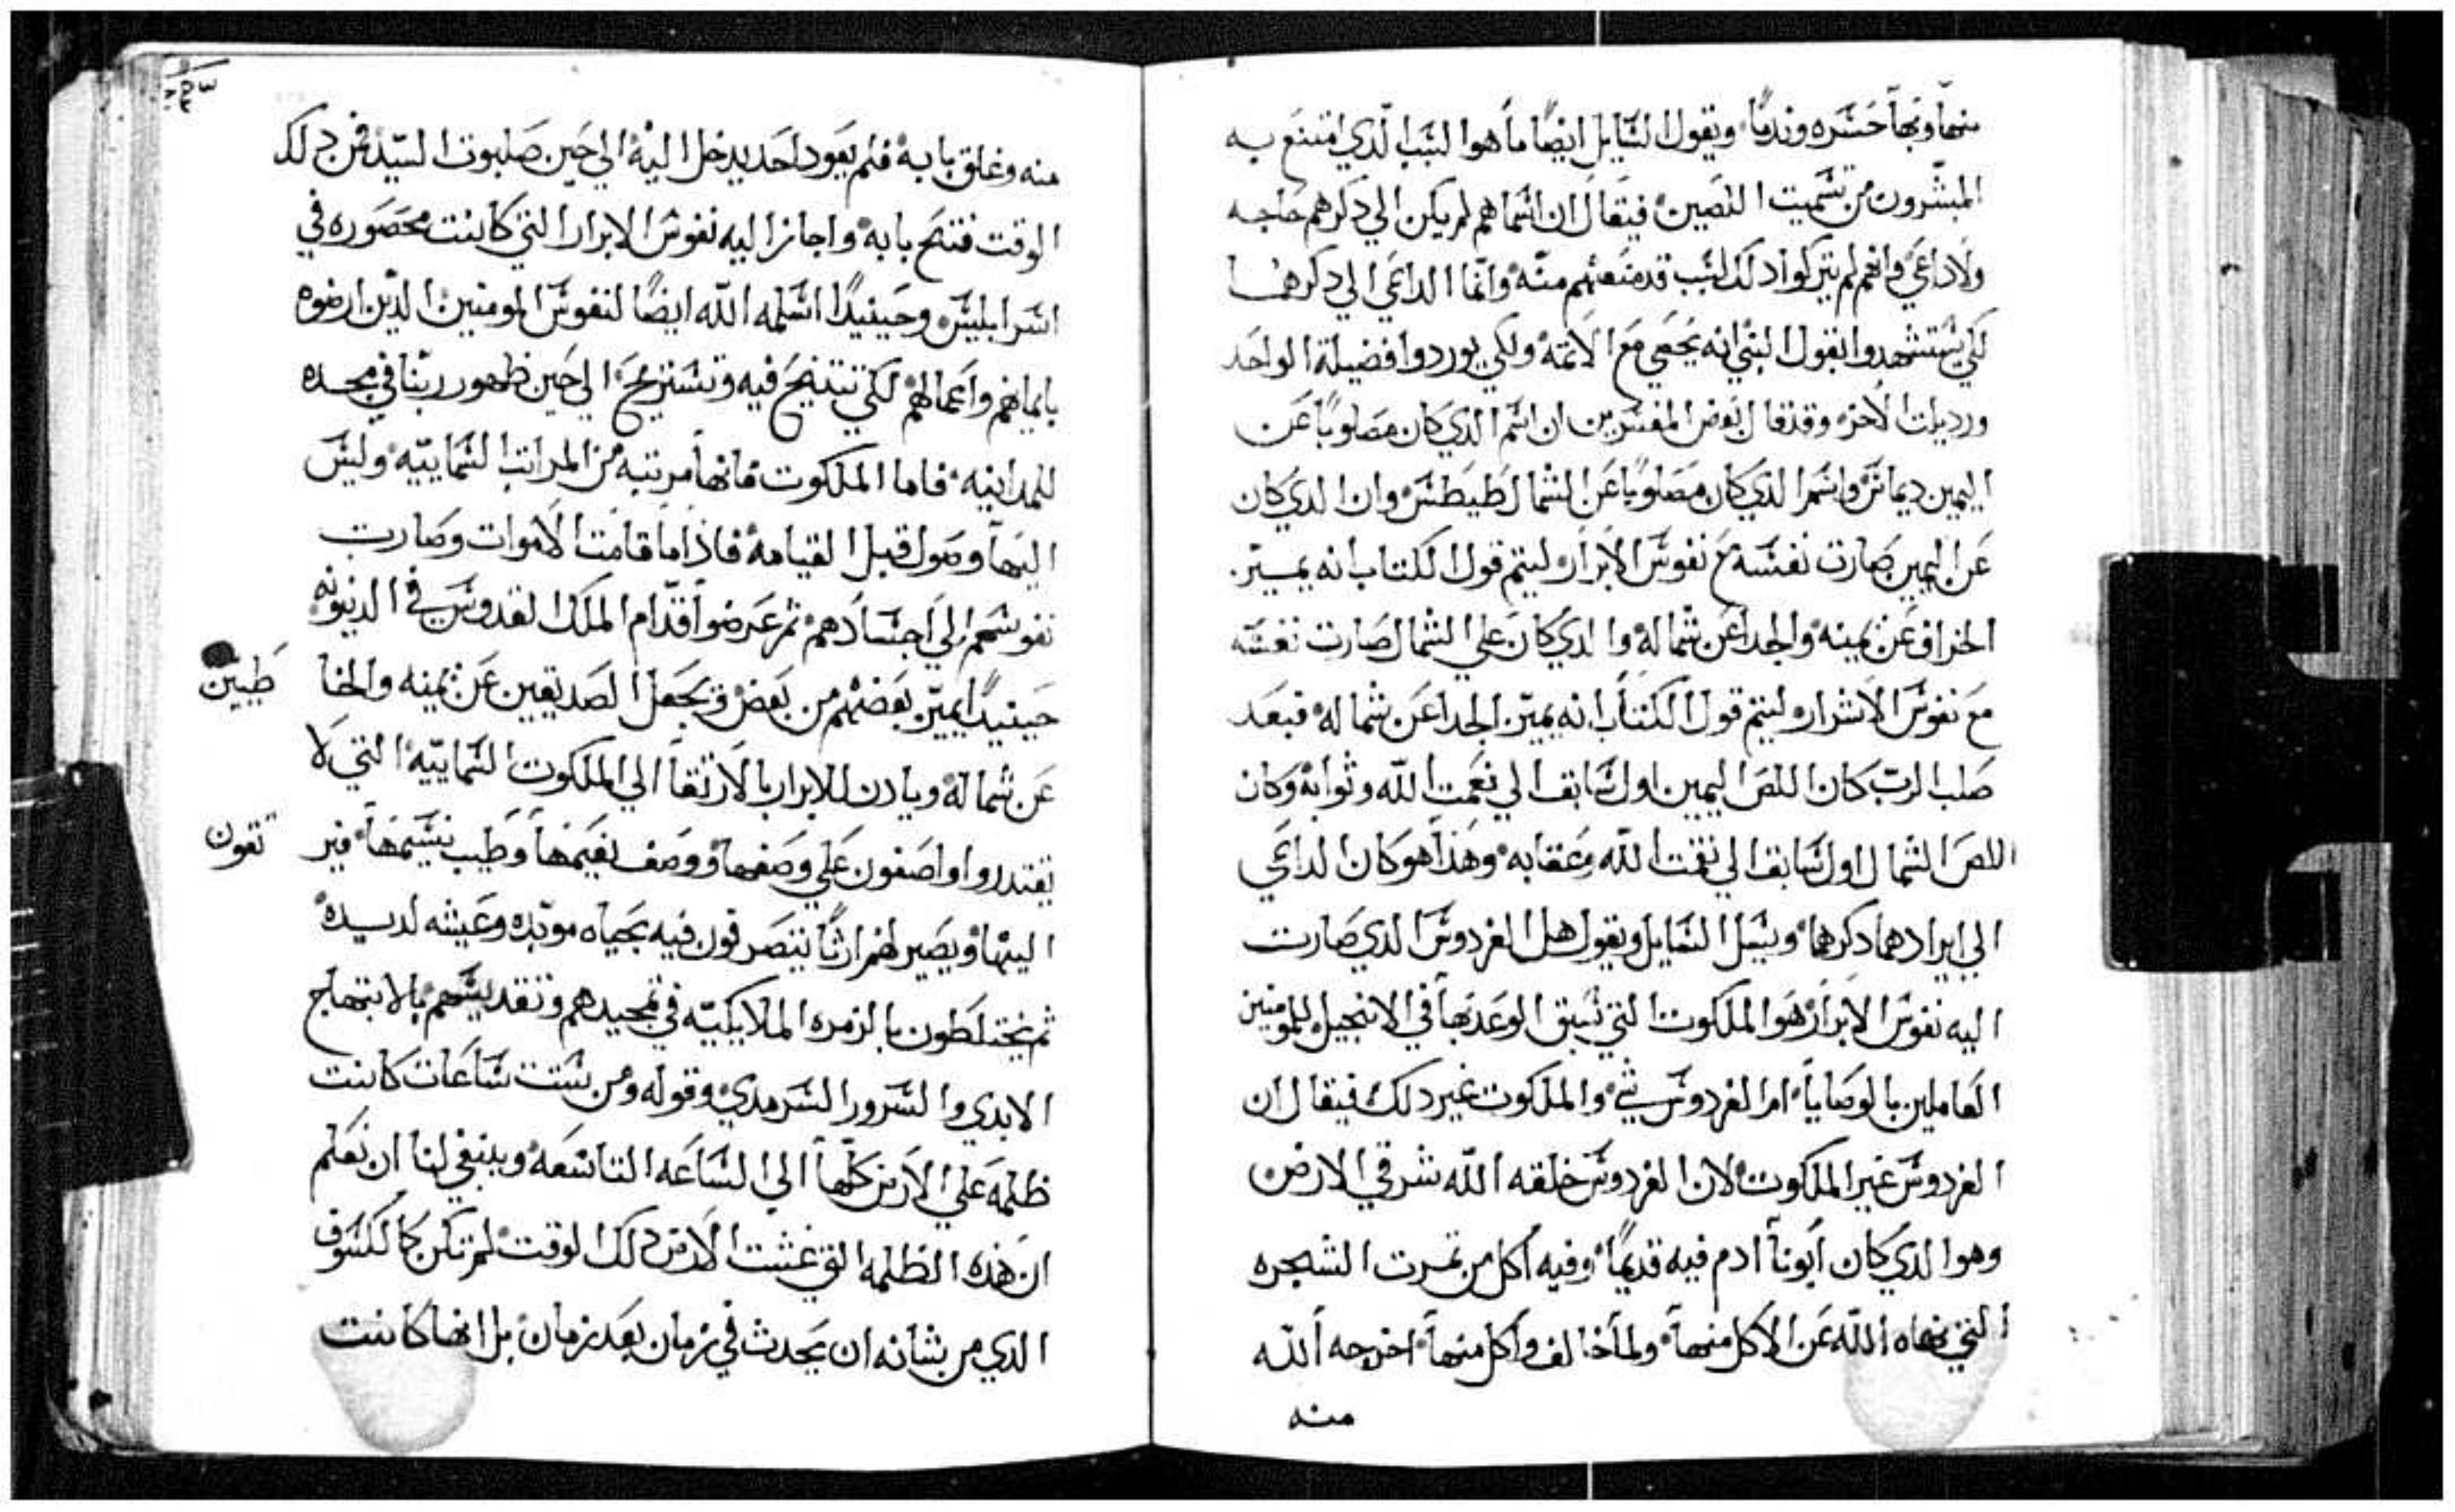 منها وبها حسره وندمًا ويقول السايل ايضًا ما هوا السبب الدي امتنع به
المبشرون من تسميت اللصين فيقال ان اسماهم لم يكن الي دكرهم حاجه
ولا داعي وانهم لم يتركوا دلك لسبب قد منعهم منه وانما الداعي الي دكرهما
لكي يستشهدوا بقول النبي انه يحصي مع الاتمه ولكي يوردوا فضيلة الواحد
ورديلت الاخر وقد قال بعض المفسرين ان اسم الدي كان مصلوبًا عن
اليمين ديماس واسم الدي كان مصلوبًا عن الشمال طيطس وان الدي كان
عن اليمين صارت نفسه مع نفوس الابرار ليتم قول الكتاب انه يميز
الخراف عن يمينه والجدا عن شماله والدي كان علي الشمال صارت نفسه
مع نفوس الاشرار ليتم قول الكتاب انه يميز الجدا عن شماله فبعد
صلب الرب كان اللص اليمين اول سابق الي نعمت الله وثوابه وكان
اللص الشمال اول سابق الي نقمت الله وعقابه وهذا هو كان الداعي
الي ايرادهما دكرهما ويسل السايل ويقول هل الفردوس الدي صارت
اليه نفوس الابرار هوا الملكوت التي سبق الوعد بها في الانجيل للمومنين
العاملين بالوصايا ام الفردوس شي والملكوت غير دلك فيقال ان
الفردوس غير الملكوت لان الفردوس خلقه الله شرقي الارض
وهوا الدي كان ابونا ادم فيه قديمًا وفيه اكل من تمرت الشجره
التي نهاه الله عن الاكل منها ولما خالف واكل منها اخرجه الله
منه
منه وغلق بابه فلم يعود احد يدخل اليه الي حين صلبوت السيد فمن دلك
الوقت فتح بابه واجاز اليه نفوس الابرار التي كانت محصوره في
اسر ابليس وحينيدًا اسلمه الله ايضًا لنفوس المومنين الدين ارضوه
بايمانهم واعمالهم لكي تتنيح فيه وتستريح الي حين ظهور ربنا في مجده
للمداينه فاما الملكوت فانها مرتبه من المراتب السماييه وليس
اليها وصول قبل القيامه فاذا ما قامت الاموات وصارت
نفوسهم الي اجسادهم ثم عرضوا قدام الملك القدوس في الدينونه
حينيدًا يميز بعضهم من بعض ويجعل الصديقين عن يمينه والخا
طيين
عن شماله ويادن للابرار بالارتقا الي الملكوت السماييه التي لا
يقتدروا واصفون علي وصفها ووصف نعيمها وطيب نسيمها فير
تقون
اليها ويصير لهم ارثًا يتصرفون فيه بحياه موبده وعيشه لديده
ثم يختلطون بالزمره الملايكيه في تمجيدهم وتقديسهم بالابتهاج
الابدي والسرور السرمدي وقوله ومن ست ساعات كانت
ظلمه علي الارض كلها الي الساعه التاسعه وينبغي لنا ان نعلم
ان هذه الظلمه التي غشت الارض دلك الوقت لم تكن كالكسوف
الدي من شانه ان يحدث في زمان بعد زمان بل انها كانت